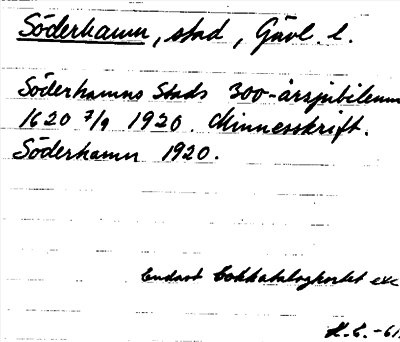 Söderhamn, stad, Gävl. l.
Söderhamns Stads 300-årsjubileum
1620 7/9 1920. Minnesskrift.
Söderhamn 1920.
Endast bokkatalogkortet exc
H.E. -61.